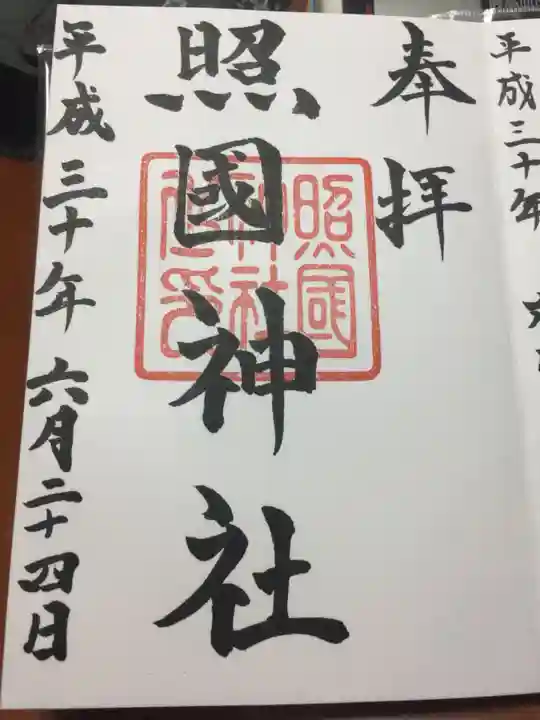 平成三十年 六
奉拝
照國神社
照國
神社
之印
平成三十年 六月二十四日